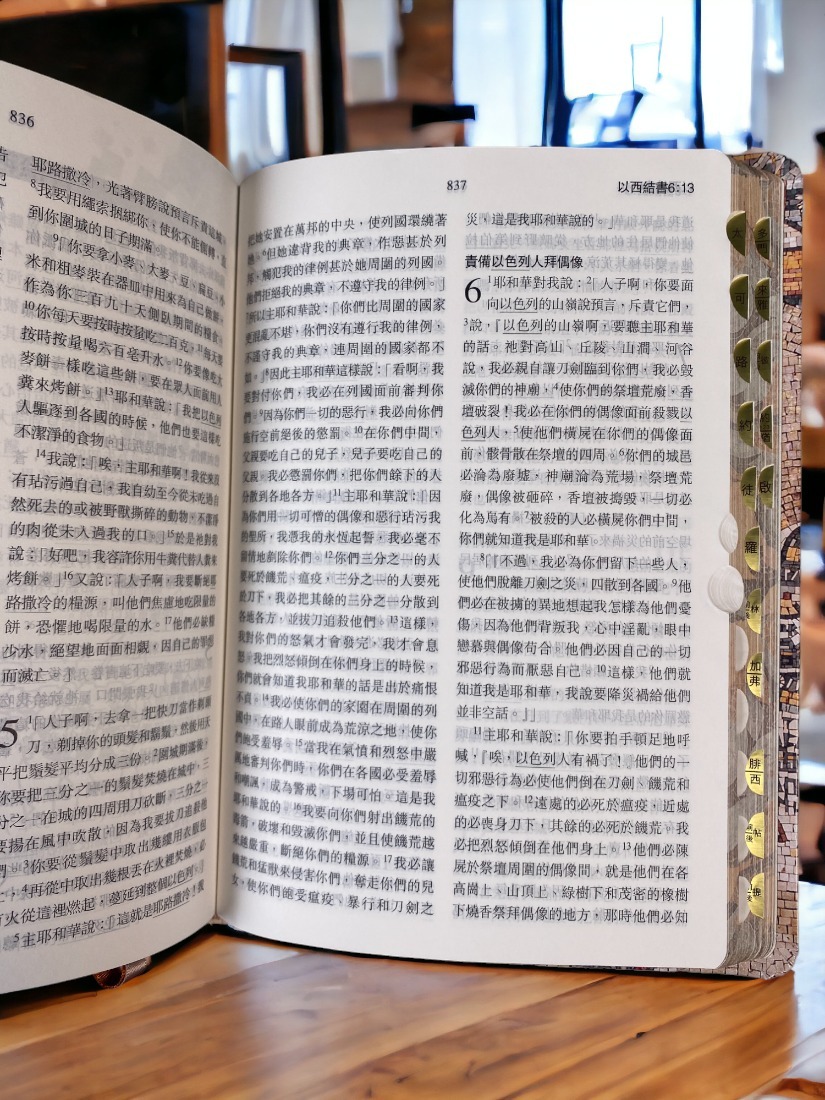 836
耶路撒冷，光著臂膀說預言斥責這城。
⁸我要用繩索捆綁你，使你不能側轉，直
到你圍城的日子期滿。
⁹「你要拿小麥、大麥、豆、豌豆、小
米和粗麥裝在器皿中用來為自己做餅，
作為你三百九十天側臥期間的糧食。
¹⁰你每天要按時按量吃二百克，¹¹每天要
按時按量喝六百毫升水。¹²你要像吃大
麥餅一樣吃這些餅，要在眾人面前用人
糞來烤餅。」¹³耶和華說：「我把以色列
人驅逐到各國的時候，他們也要這樣吃
不潔淨的食物。」
¹⁴我說：「唉，主耶和華啊！我從來沒
有玷污過自己，我自幼至今從未吃過自
然死去的或被野獸撕碎的動物，不潔淨
的肉從未入過我的口。」¹⁵於是祂對我
說：「好吧，我容許你用牛糞代替人糞來
烤餅。」¹⁶又說：「人子啊，我要斷絕耶
路撒冷的糧源，叫他們焦慮地吃限量的
餅，恐懼地喝限量的水。¹⁷他們必缺糧
少水，絕望地面面相覷，因自己的罪惡
而滅亡。」
5 ¹「人子啊，去拿一把快刀當作剃頭
刀，剃掉你的頭髮和鬍鬚，然後用天
平把鬚髮平均分成三份。²圍城期滿後，
你要把三分之一的鬚髮焚燒在城中，三分
之一在城的四周用刀砍斷，三分之一
要揚在風中吹散，因為我要拔刀追趕他
們。³你要從鬚髮中取出幾縷用衣服包
上，⁴再從中取出幾根丟在火裡焚燒，必
有火從這裡燃起，蔓延到整個以色列。」
⁵主耶和華說：「這就是耶路撒冷！我
837
以西結書6:13
把她安置在萬邦的中央，使列國環繞著
她。⁶但她違背我的典章，作惡甚於列
邦，觸犯我的律例甚於她周圍的列國。
他們拒絕我的典章，不遵守我的律例。」
⁷所以主耶和華說：「你們比周圍的國家
更混亂不堪，你們沒有遵行我的律例，
不遵守我的典章，連周圍的國家都不
如。」⁸因此主耶和華這樣說：「看啊，我
要對付你們，我必在列國面前審判你
們。⁹因為你們一切的惡行，我必向你們
施行空前絕後的懲罰。¹⁰在你們中間，
父親要吃自己的兒子，兒子要吃自己的
父親。我必懲罰你們，把你們餘下的人
分散到各地各方。」¹¹主耶和華說：「因
為你們用一切可憎的偶像和惡行玷污我
的聖所，我憑我的永恆起誓，我必毫不
留情地剷除你們。¹²你們三分之一的人
要死於饑荒、瘟疫，三分之一的人要死
於刀下，我必把其餘的三分之一分散到
各地各方，並拔刀追殺他們。¹³這樣，
我對你們的怒氣才會發完，我才會息
怒。我把烈怒傾倒在你們身上的時候，
他們就會知道我耶和華的話是出於痛恨
不貞。¹⁴我必使你們的家園在周圍的列
國中，在路人眼前成為荒涼之地，使你
們飽受羞辱。¹⁵當我在氣憤和烈怒中嚴
厲地審判你們時，你們在各國必受羞辱
和嘲諷，成為警戒，下場可怕。這是我
耶和華說的。¹⁶我要向你們射出饑荒的
毒箭，破壞和毀滅你們，並且使饑荒越
來越嚴重，斷絕你們的糧源。¹⁷我必讓
饑荒和猛獸來侵害你們，奪走你們的兒
女，使你們飽受瘟疫、暴行和刀劍之
災。這是我耶和華說的。」
責備以色列人拜偶像
6 ¹耶和華對我說：²「人子啊，你要面
向以色列的山嶺說預言，斥責它們，
³說，『以色列的山嶺啊，要聽主耶和華
的話。祂對高山、丘陵、山澗、河谷
說，我必親自讓刀劍臨到你們，我必毀
滅你們的神廟，⁴使你們的祭壇荒廢，香
壇破裂！我必在你們的偶像面前殺戮以
色列人，⁵使他們橫屍在你們的偶像面
前，骸骨散在祭壇的四周。⁶你們的城邑
必淪為廢墟，神廟淪為荒場，祭壇荒
廢，偶像被砸碎，香壇被搗毀，一切必
化為烏有。⁷被殺的人必橫屍你們中間，
你們就知道我是耶和華。
⁸「『不過，我必為你們留下一些人，
使他們脫離刀劍之災，四散到各國。⁹他
們必在被擄的異地想起我怎樣為他們憂
傷，因為他們背叛我，心中淫亂，眼中
戀慕與偶像苟合。他們必因自己的一切
邪惡行為而厭惡自己。¹⁰這樣，他們就
知道我是耶和華，我說要降災禍給他們
並非空話。』」
¹¹主耶和華說：「你要拍手頓足地呼
喊，『唉，以色列人有禍了！』他們的一
切邪惡行為必使他們倒在刀劍、饑荒和
瘟疫之下。¹²遠處的必死於瘟疫，近處
的必喪身刀下，其餘的必死於饑荒。我
必把烈怒傾倒在他們身上。¹³他們必陳
屍於祭壇周圍的偶像間，就是他們在各
高崗上、山頂上、綠樹下和茂密的橡樹
下燒香祭拜偶像的地方，那時他們必知
太
可
路
約
徒
啟
羅
加
弗
腓
西
帖